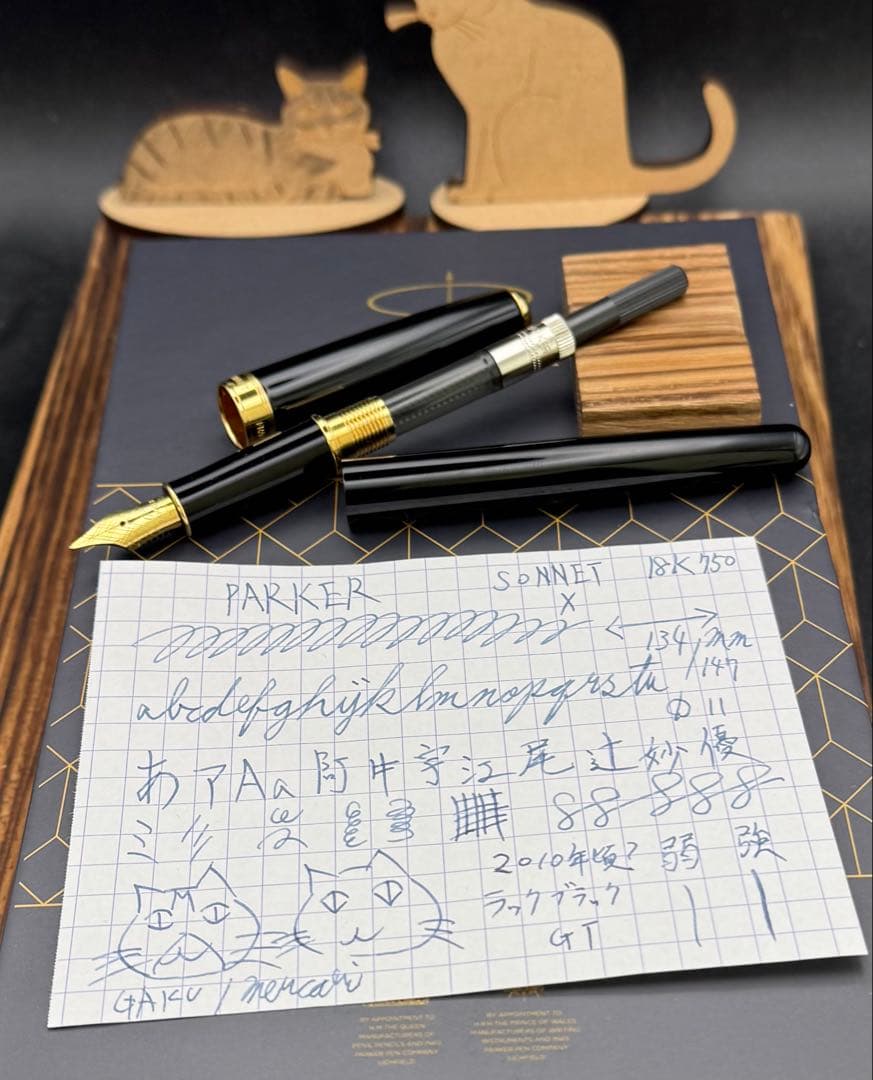 PARKER SONNET 18K750
X
134 mm
/147
abcdefghijklmnopqrstu
Φ11
あ ア A a 阿 井 宇 江 尾 辻 妙 優
ミ
2010年頃? 弱 強
ラックブラック
GT
GAKU / mercari
BY APPOINTMENT TO BY APPOINTMENT TO
H.M. THE QUEEN H.R.H. THE PRINCE OF WALES
MANUFACTURERS OF MANUFACTURERS OF WRITING
PENS, PENCILS AND INKS INSTRUMENTS AND INKS
PARKER PEN COMPANY PARKER PEN COMPANY
LICHFIELD LICHFIELD